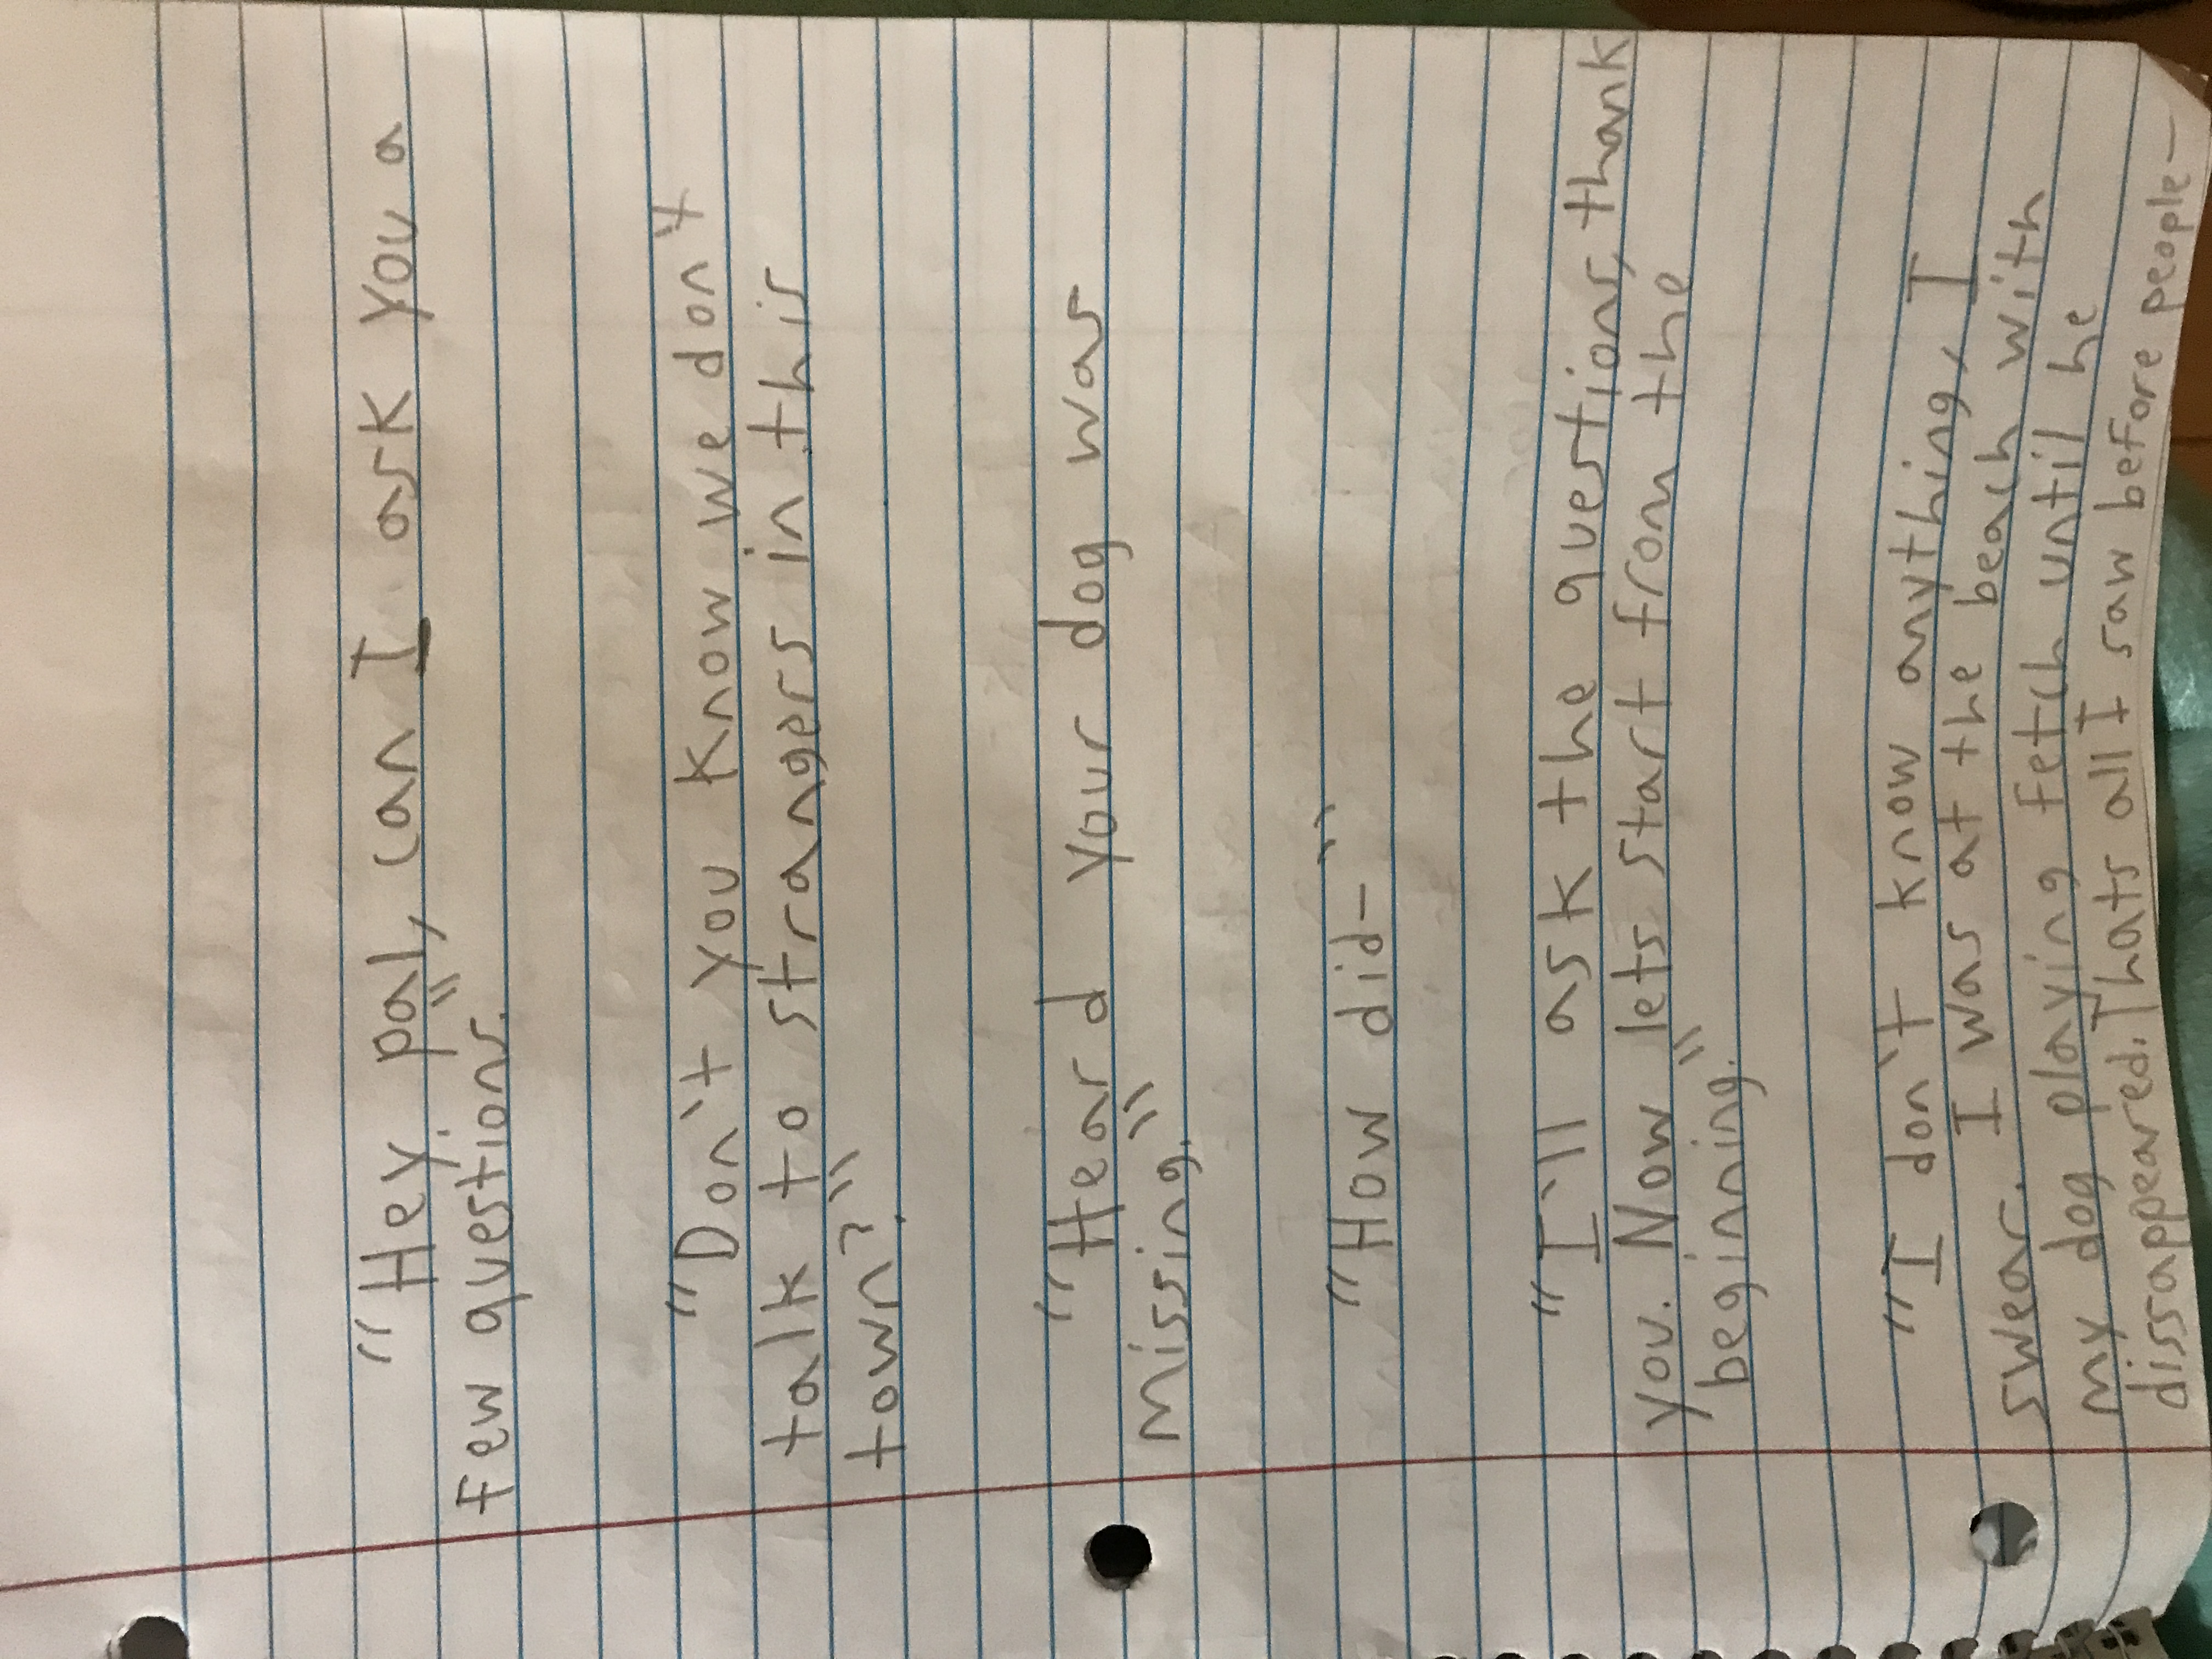 "Hey pal, can I ask you a
few questions."
"Don't you know we don't
talk to strangers in this
town?"
"Heard your dog was
missing."
"How did-"
"I'll ask the questions, thank
you. Now lets start from the
beginning."
"I don't know anything, I
swear. I was at the beach with
my dog playing fetch until he
dissappeared. Thats all I saw before people-